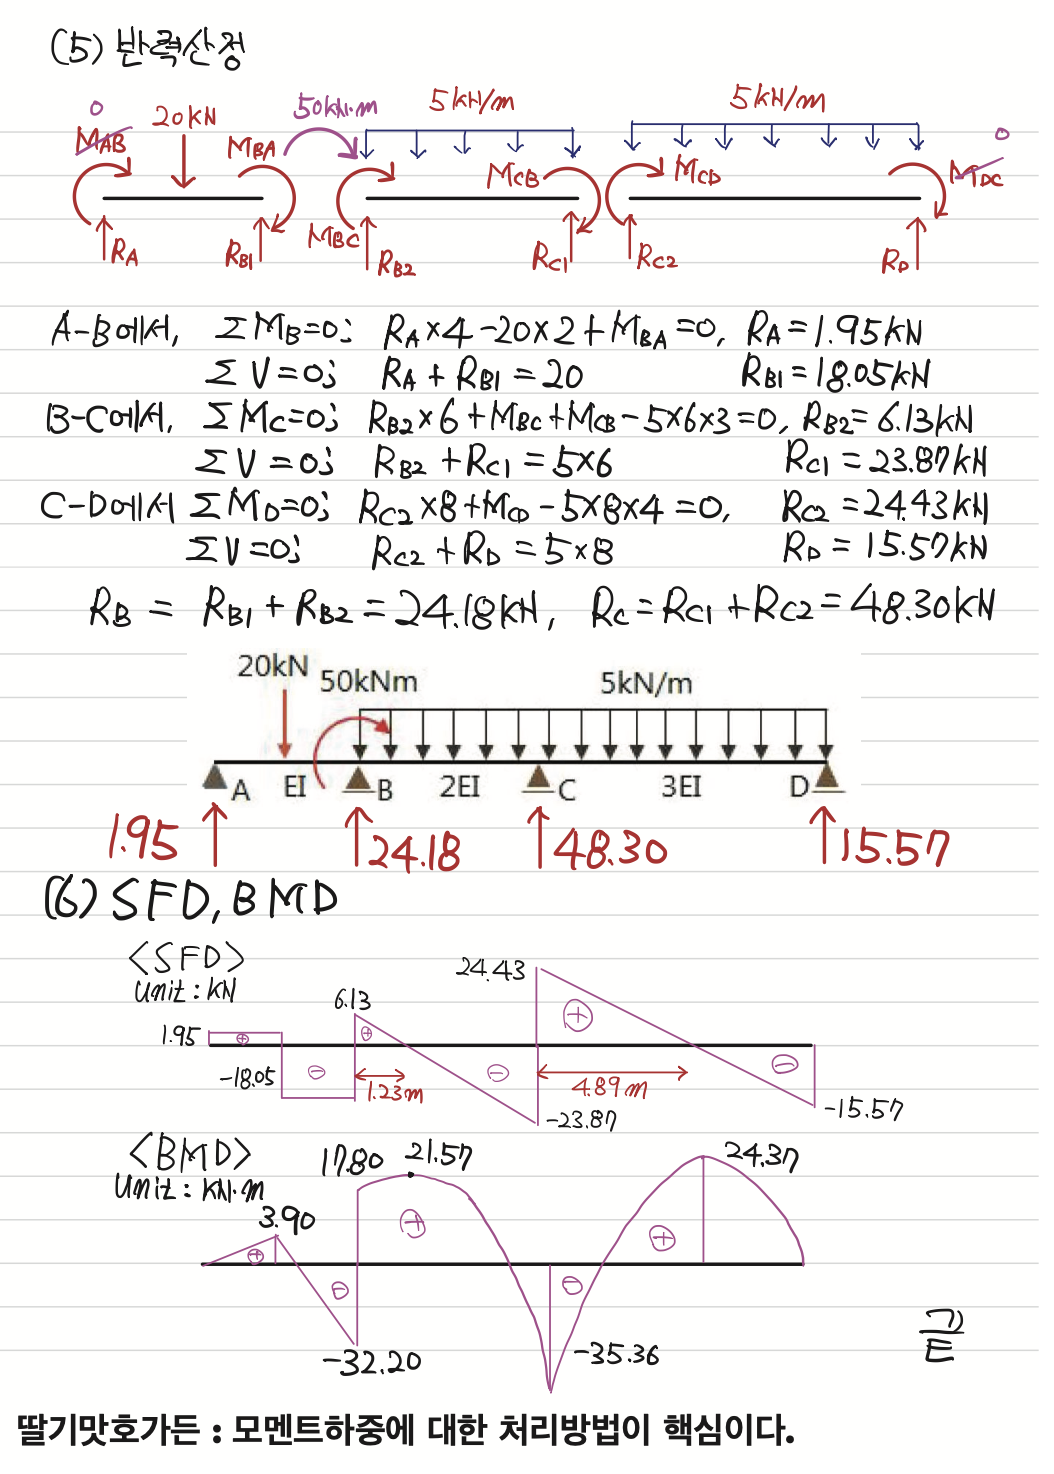 (5) 반력산정
0 20kN 50kN·m 5kN/m 5kN/m 0
MAB MBA MBC MCB MCD MDC
RA RB1 RB2 RC1 RC2 RD
A-B에서, ΣMB=0; RA×4-20×2+MBA=0, RA=1.95kN
ΣV=0; RA+RB1=20 RB1=18.05kN
B-C에서, ΣMC=0; RB2×6+MBC+MCB-5×6×3=0, RB2=6.13kN
ΣV=0; RB2+RC1=5×6 RC1=23.87kN
C-D에서 ΣMD=0; RC2×8+MCD-5×8×4=0, RC2=24.43kN
ΣV=0; RC2+RD=5×8 RD=15.57kN
RB=RB1+RB2=24.18kN, RC=RC1+RC2=48.30kN
20kN 50kNm 5kN/m
A EI B 2EI C 3EI D
1.95 24.18 48.30 15.57
(6) SFD, BMD
<SFD>
unit: kN
1.95 -18.05 6.13 1.23m -23.87 24.43 4.89m -15.57
<BMD>
unit: kN·m
3.90 -32.20 17.80 21.57 -35.36 24.37
끝
딸기맛호가든 : 모멘트하중에 대한 처리방법이 핵심이다.